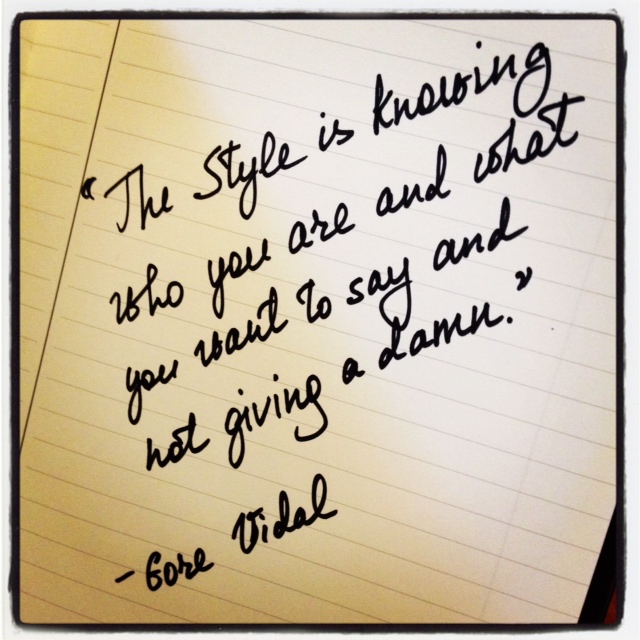 “The Style is knowing
who you are and what
you want to say and
not giving a damn.”
- Gore Vidal